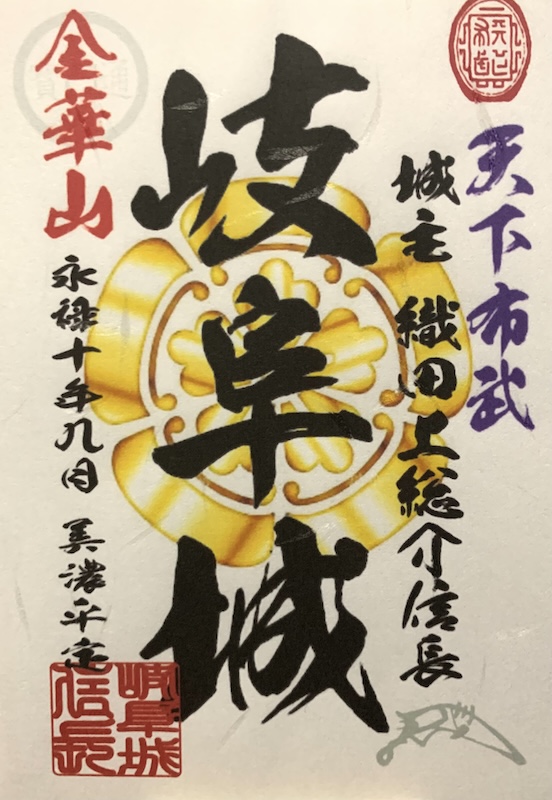 天下布武
城主 織田上総介信長
岐阜城
金華山
永禄十年九月 美濃平定
岐阜城
信長